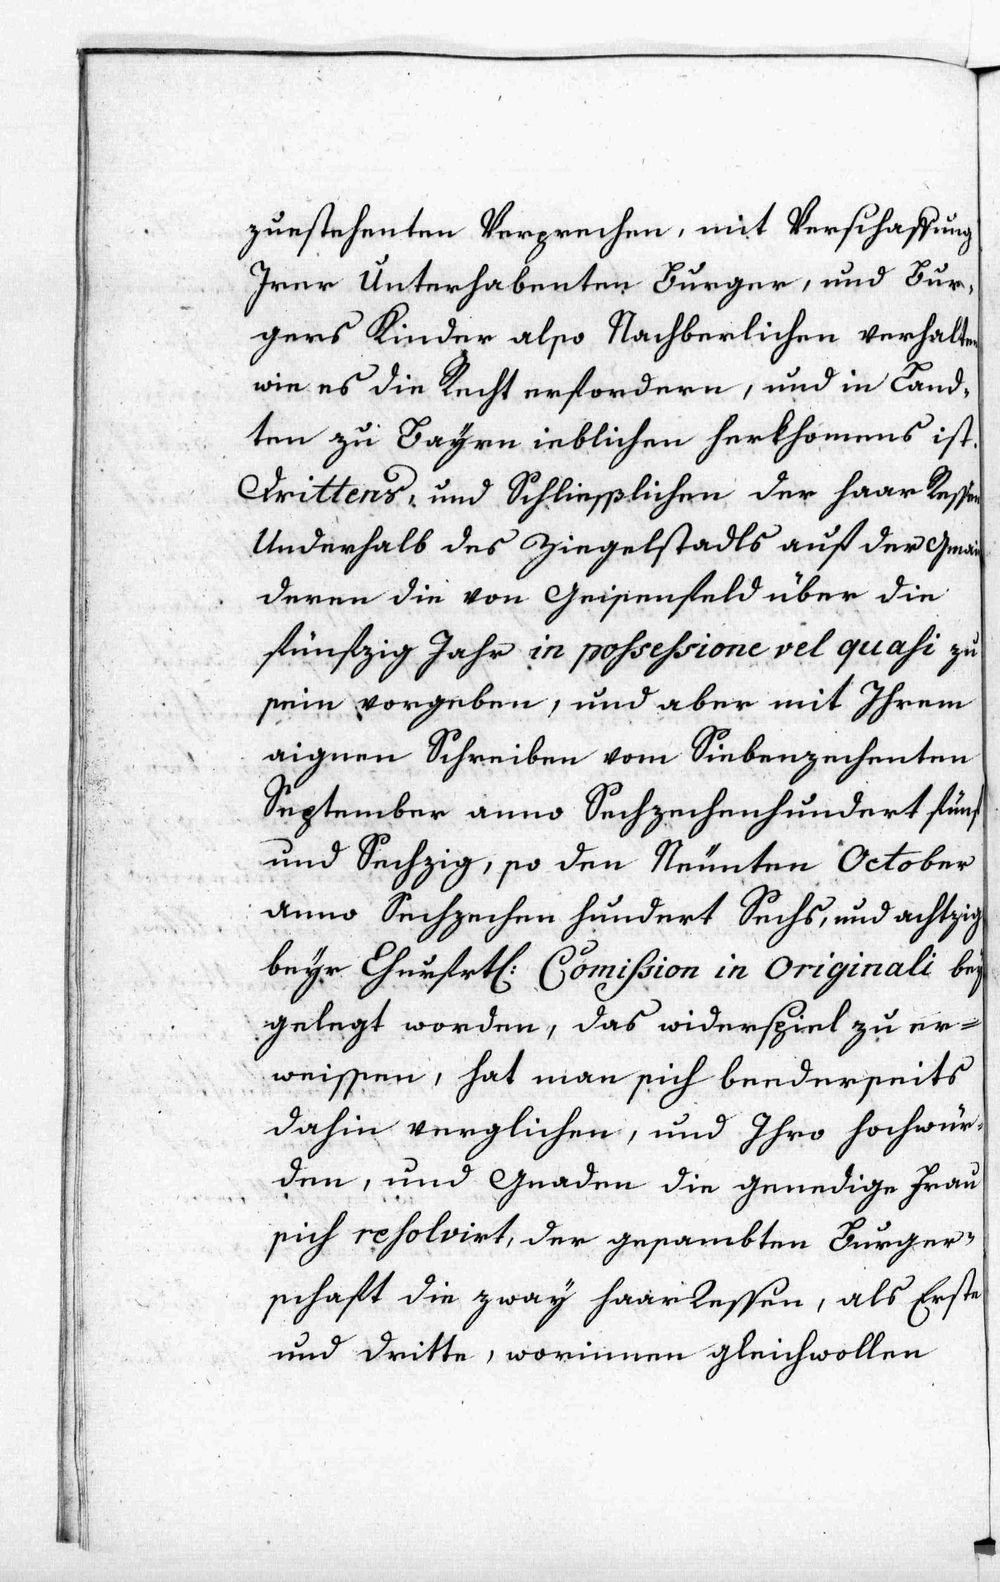 zuestehenten Versprechen, mit Verschaffung
Irer Unterhabenten Burger, und Bur-
gers Kinder also Nachberlichen verhalten
wie es die Recht erfordern, und in Land-
ten zu Bayrn ieblichen herkhomens ist.
Drittens, und Schliesslichen der haar Ressen
Underhalb des Ziegelstadls auf der Gmain
deren die von Geisenfeld über die
fünfzig Jahr in possessione vel quasi zu
sein vorgeben, und aber mit Ihrem
aignen Schreiben vom Siebenzechenten
September anno Sechzechenhundert fünf
und Sechzig, so den Neünten October
anno Sechzechen hundert Sechs, und achtzig
beyr Churfrtl: Comißion in Originali bey
gelegt worden, das widerspiel zu er=
weissen, hat man sich beederseits
dahin verglichen, und Ihro hochwür-
den, und Gnaden die genedige Frau
sich resolvirt, der gesambten Burger-
schaft die zway haar Ressen, als Erste
und dritte, worinnen gleichwollen